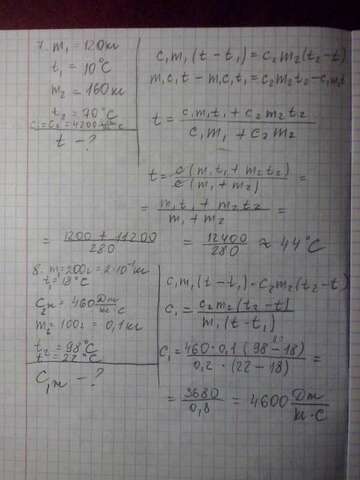 7. m₁ = 120кг
t₁ = 10°C
m₂ = 160кг
t₂ = 70°C
c₁=c₂=4200
t - ?
c₁m₁(t-t₁) = c₂m₂(t₂-t)
m₁c₁t - m₁c₁t₁ = c₂m₂t₂ - c₂m₂t
t = (c₁m₁t₁ + c₂m₂t₂)/(c₁m₁ + c₂m₂)
t = c(m₁t₁ + m₂t₂)/c(m₁ + m₂) =
= (m₁t₁ + m₂t₂)/(m₁ + m₂) =
= (1200 + 11200)/280 = 12400/280 ≈ 44°C
8. m₁=200г = 2·10⁻¹кг
t₁ = 18°C
c₂ж = 460 Дж/кг°C
m₂ = 100г = 0,1кг
t₂ = 98°C
t = 22°C
c₁ж - ?
c₁m₁(t-t₁) = c₂m₂(t₂-t)
c₁ = c₂m₂(t₂-t)/m₁(t-t₁)
c₁ = 460·0,1(98-18)/0,2·(22-18) =
= 3680/0,8 = 4600 Дж/кг·C